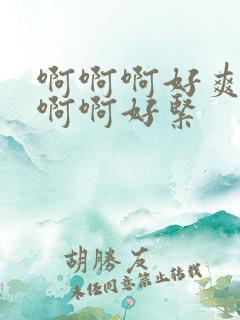 啊啊啊好爽
啊啊好紧
胡勝友
未经同意禁止转载